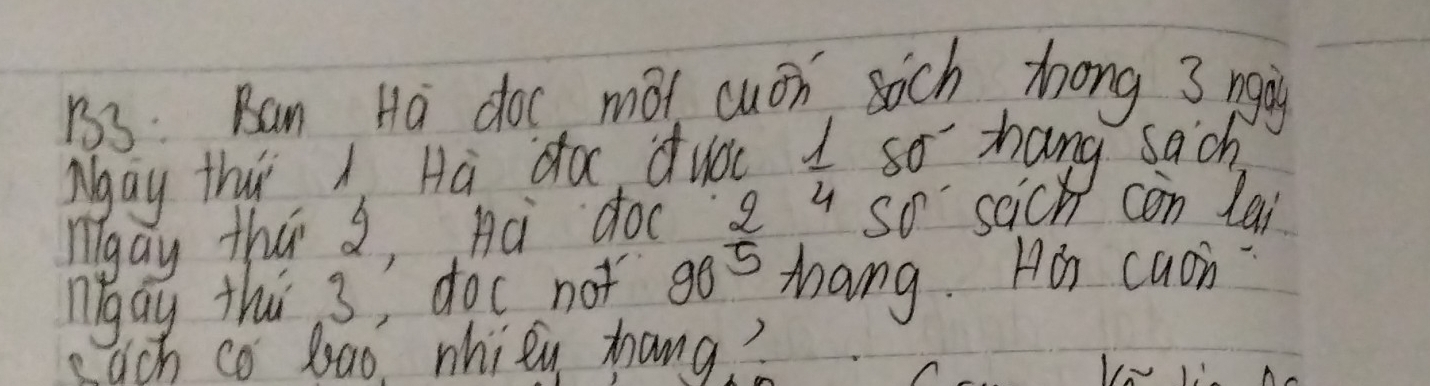 B3: Bạn Hà đọc một cuốn sách trong 3 ngày
Ngày thứ 1, Hà đọc được 1/4 số trang sách
Ngày thứ 2, Hà đọc 2/5 số sách còn lại
Ngày thứ 3, đọc nốt 90 trang. Hỏi cuốn
sách có bao nhiêu trang?